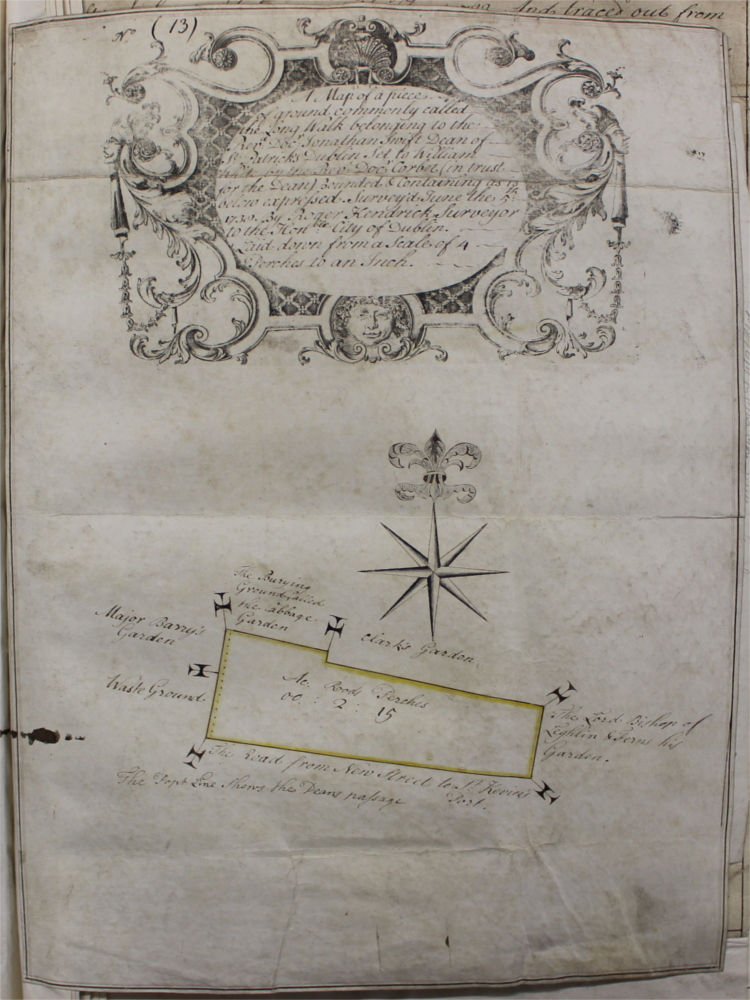 And traced out from
No (13)
A Map of a piece
of ground commonly called
the Long Walk belonging to the
Revd. Docr. Jonathan Swift Dean of
St. Patricks Dublin Set to William
by the Revd. Docr. Corbet (in trust
for the Dean) Bounded & Containing as
below expressed. Survey'd June the 5th
1739. By Roger Kendrick Surveyor
to the Honble City of Dublin.
Laid down from a Scale of 4
Perches to an Inch.
The Burying
Ground called
the Cabbage
Garden
Major Barry's
Garden
Clark's Garden
Waste Ground
Ac. Rods Perches
00 : 2 : 15
The Lord Bishop of
Leghlin & Ferns his
Garden.
The Road from New Street to St. Kevin's
Port.
The Prpt Line Shows the Deans passage